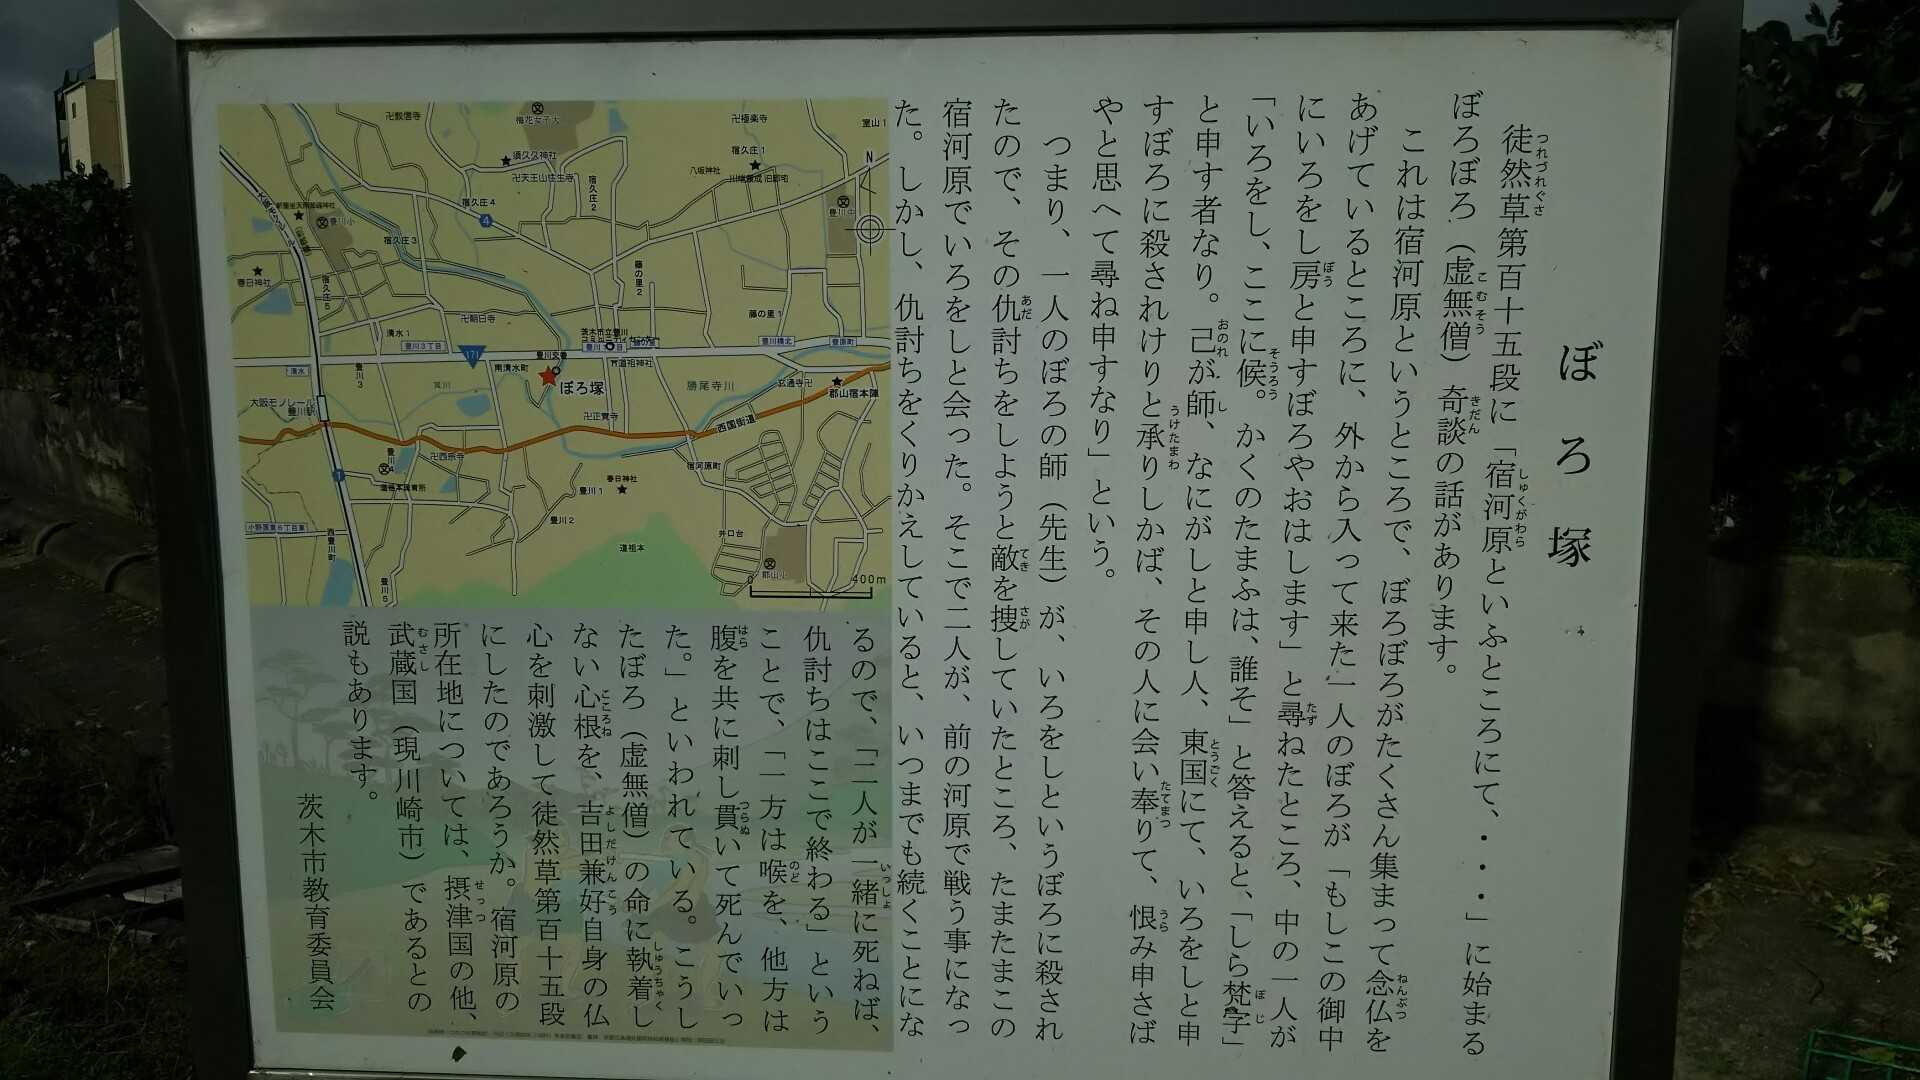 ぼろ塚
徒然草第百十五段に「宿河原といふところにて、・・・」に始まる
ぼろぼろ（虚無僧）奇談の話があります。
これは宿河原というところで、ぼろぼろがたくさん集まって念仏を
あげているところに、外から入って来た一人のぼろが「もしこの御中
にいろをし房と申すぼろやおはします」と尋ねたところ、中の一人が
「いろをし、ここに候。かくのたまふは、誰そ」と答えると、「しら梵字」
と申す者なり。己が師、なにがしと申し人、東国にて、いろをしと申
すぼろに殺されけりと承りしかば、その人に会い奉りて、恨み申さば
やと思へて尋ね申すなり」という。
つまり、一人のぼろの師（先生）が、いろをしというぼろに殺され
たので、その仇討ちをしようと敵を捜していたところ、たまたまこの
宿河原でいろをしと会った。そこで二人が、前の河原で戦う事になっ
た。しかし、仇討ちをくりかえしていると、いつまでも続くことにな
るので、「二人が一緒に死ねば、
仇討ちはここで終わる」という
ことで、「一方は喉を、他方は
腹を共に刺し貫いて死んでいっ
た。」といわれている。こうし
たぼろ（虚無僧）の命に執着し
ない心根を、吉田兼好自身の仏
心を刺激して徒然草第百十五段
にしたのであろうか。宿河原の
所在地については、摂津国の他、
武蔵国（現川崎市）であるとの
説もあります。
茨木市教育委員会
梅花女子大
卍極楽寺
室山1
須久久神社
卍天王山往生寺
宿久庄1
八坂神社
宿久庄2
宿久庄4
4
豊川小
宿久庄3
N
春日神社
宿久庄5
藤の里2
藤の里1
卍朝日寺
清水1
豊川3丁目
171
豊川橋北
豊原町
清水
豊川3
南清水町
ぼろ塚
勝尾寺川
郡山宿本陣
大阪モノレール
豊川駅
卍正覚寺
西国街道
卍西宗寺
宿河原町
春日神社
豊川1
豊川2
小野原東6丁目東
西豊川町
豊川5
道祖本
井口台
郡山小
0
400m